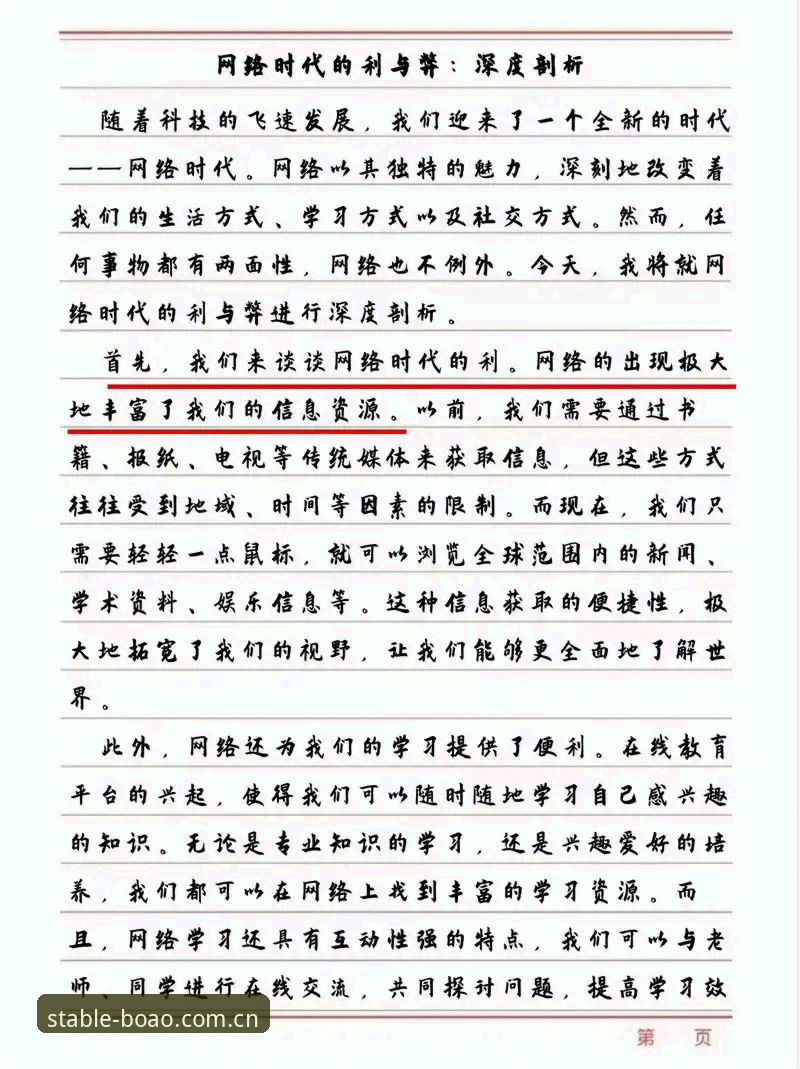 网络时代的利与弊：深度剖析
随着科技的飞速发展，我们迎来了一个全新的时代
——网络时代。网络以其独特的魅力，深刻地改变着
我们的生活方式、学习方式以及社交方式。然而，任
何事物都有两面性，网络也不例外。今天，我将就网
络时代的利与弊进行深度剖析。
首先，我们来谈谈网络时代的利。网络的出现极大
地丰富了我们的信息资源。以前，我们需要通过书
籍、报纸、电视等传统媒体来获取信息，但这些方式
往往受到地域、时间等因素的限制。而现在，我们只
需要轻轻一点鼠标，就可以浏览全球范围内的新闻、
学术资料、娱乐信息等。这种信息获取的便捷性，极
大地拓宽了我们的视野，让我们能够更全面地了解世
界。
此外，网络还为我们的学习提供了便利。在线教育
平台的兴起，使得我们可以随时随地学习自己感兴趣
的知识。无论是专业知识的学习，还是兴趣爱好的培
养，我们都可以在网络上找到丰富的学习资源。而
且，网络学习还具有互动性强的特点，我们可以与老
师、同学进行在线交流，共同探讨问题，提高学习效
stable-boao.com.cn
第 页